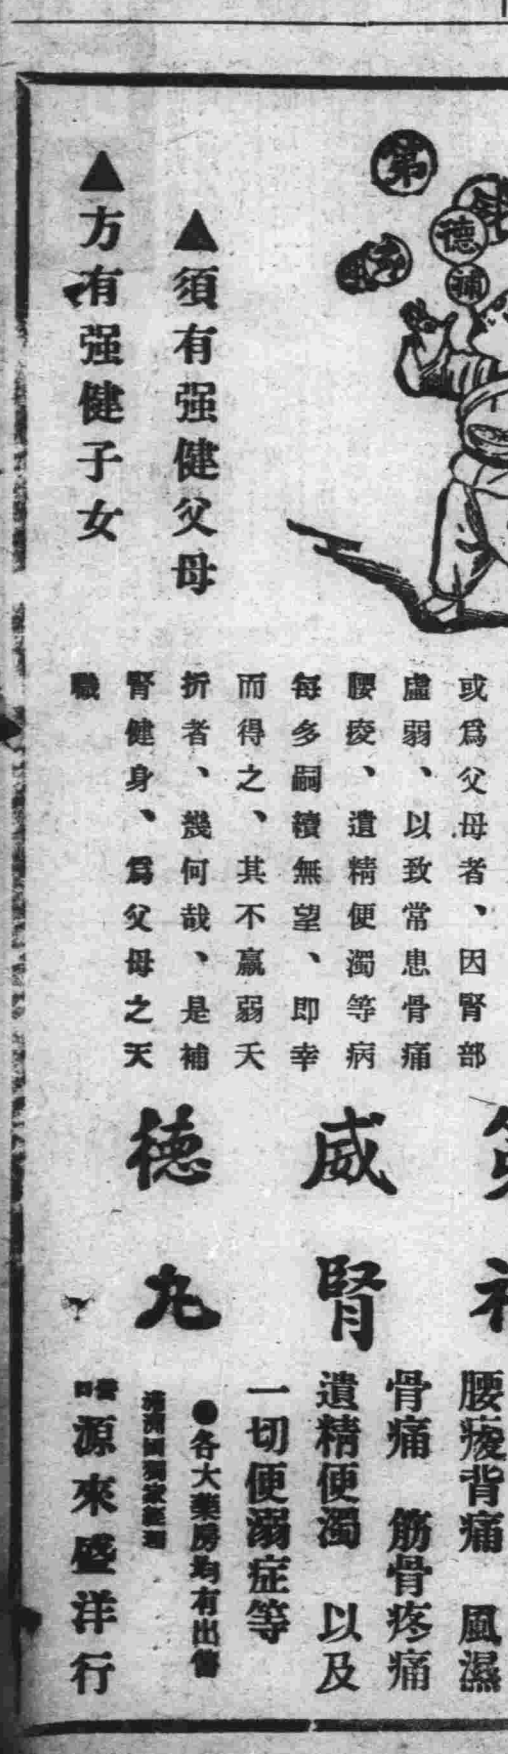 第
德
補
▲須有强健父母
▲方有强健子女
或爲父母者、因腎部
虛弱、以致常患骨痛
腰痠、遺精便濁等病
每多嗣續無望、即幸
而得之、其不羸弱夭
折者、幾何哉、是補
腎健身、爲父母之天
職
威德
腎丸
腰痠背痛 風濕
骨痛 筋骨疼痛
遺精便濁 以及
一切便溺症等
●各大藥房均有出售
滿洲國獨家經理
營口 源來盛洋行